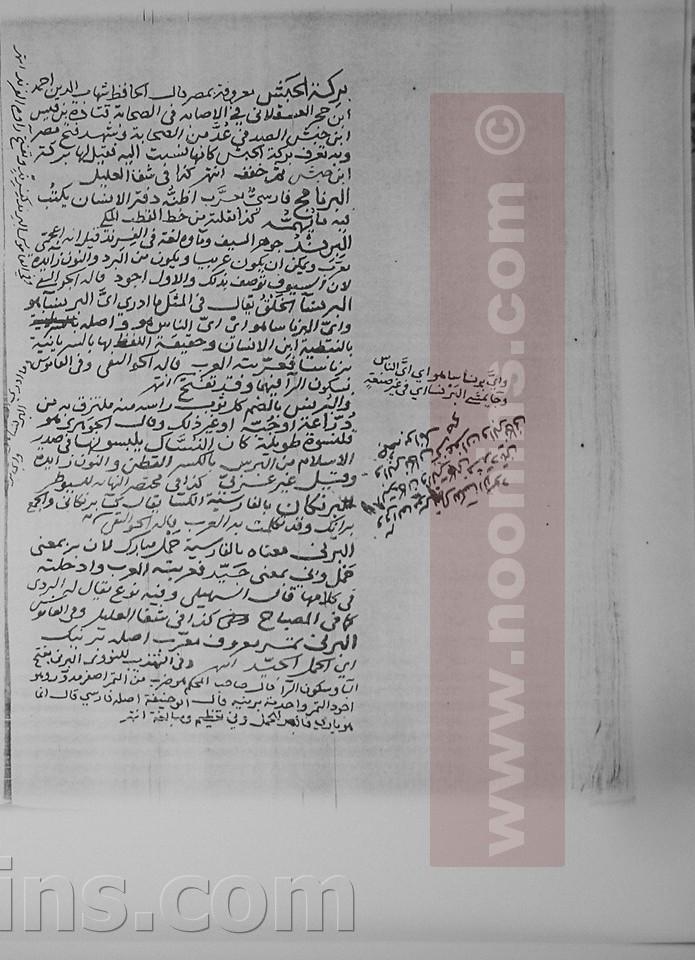 بركة الحبش معروفة بمصر قال الحافظ شهاب الدين احمد
ابن حجر العسقلاني في الاصابة في الصحابة قتادة بن قيس
ابن حبش الصدفي عُدَّ من الصحابة وشهد فتح مصر
وبه تعرف بركة الحبش كانها نسبت اليه فقيل لها بركة
ابن حبش ثم خفف انتهى كذا في شفا العليل
البرنامج فارسي معرب اظنه دفتر الانسان يكتب
فيه ما يهمه كذا نقلته من خط القطب المكي
البرند جوهر السيف وماؤه لغة في الفرند قيل انه اعجمي
معرب ويمكن ان يكون عربيا ويكون من البرد والنون زائدة
لان السيوف توصف بذلك والاول اجود قاله الجواليقي
البرنسا الخلق يقال في المثل ما ادري اي البرنسا هو
واي البرناسا هو اي اي الناس هو واصله
بالنبطية ابن الانسان وحقيقة اللفظ بها بالسريانية
برناسا فعربته العرب قاله الجواليقي وفي القاموس
بسكون الرا فيهما وقد تفتح انتهى
والبرنس بالضم كل ثوب راسه منه ملتزق به من
درّاعة او جبّة او غير ذلك وقال الجوهري هو
قلنسوة طويلة كان النساك يلبسونها في صدر
الاسلام من البرس بالكسر القطن والنون زائدة
وقيل غير عربي كذا في مختصر النهاية للسيوطي
البرنكان بالفارسية الكسا يقال كسا برنكاني والجمع
برانك وقد تكلمت به العرب قاله الجواليقي
البرني معناه بالفارسية حمل مبارك لان بر بمعنى
حمل وني بمعنى جيد فعربته العرب وادخلته
في كلامها قاله السهيلي وفيه نوع يقال له البردي
كما في المصباح كذا في شفا العليل وفي القاموس
البرني تمر معروف معرب اصله برنيك
اي الحمل الجيد انتهى وفي التهذيب للنووي البرني بفتح
البا وسكون الرا قال صاحب المحكم هو ضرب من التمر اصفر مدور وهو
اجود التمر واحدته برنية قال ابو حنيفة اصله فارسي قال انما
هو بارني فالبار الحمل وني تعظيم ومبالغة انتهى
واي برناسا هو اي اي الناس
وجا يمشي البرنسا اي في غير صنعة
© www.noonins.com
ins.com